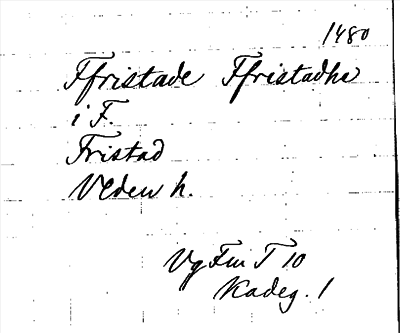 1480
Ffristade Ffristadha
i F.
Fristad
Veden h.
Vg Fm T 10
Kadeg. 1